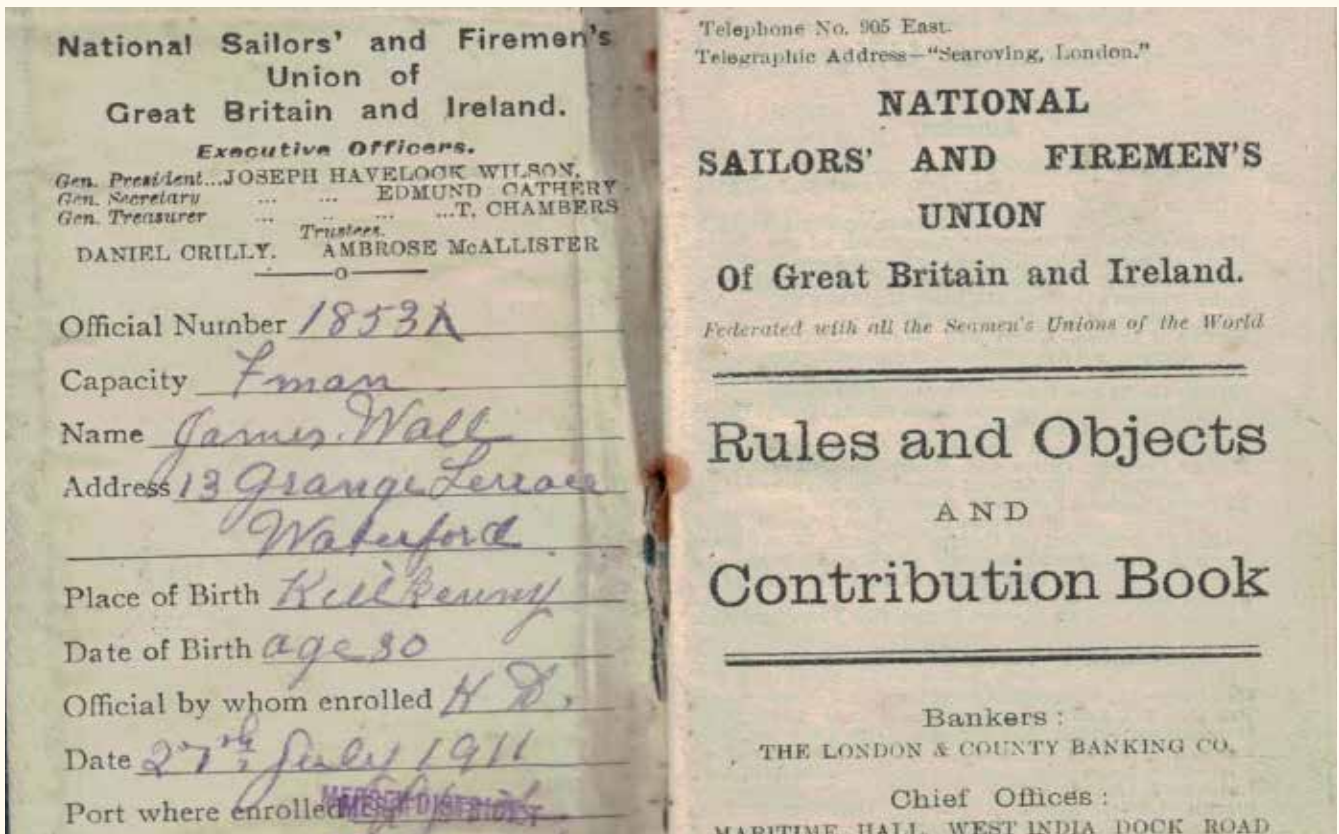 National Sailors' and Firemen's
Union of
Great Britain and Ireland.
Executive Officers.
Gen. President...JOSEPH HAVELOCK WILSON.
Gen. Secretary ... ... EDMUND CATHERY
Gen. Treasurer ... .. ... ...T. CHAMBERS
Trustees.
DANIEL CRILLY. AMBROSE McALLISTER
Official Number 1853
Capacity Fman
Name James Wall
Address 13 Grange Terrace
Waterford
Place of Birth Kilkenny
Date of Birth age 30
Official by whom enrolled H D.
Date 27th July 1911
Port where enrolled MERSEY DISTRICT
Telephone No. 905 East.
Telegraphic Address—"Searoving, London."
NATIONAL
SAILORS' AND FIREMEN'S
UNION
Of Great Britain and Ireland.
Federated with all the Seamen's Unions of the World
Rules and Objects
AND
Contribution Book
Bankers :
THE LONDON & COUNTY BANKING CO.
Chief Offices :
MARITIME HALL, WEST INDIA DOCK ROAD